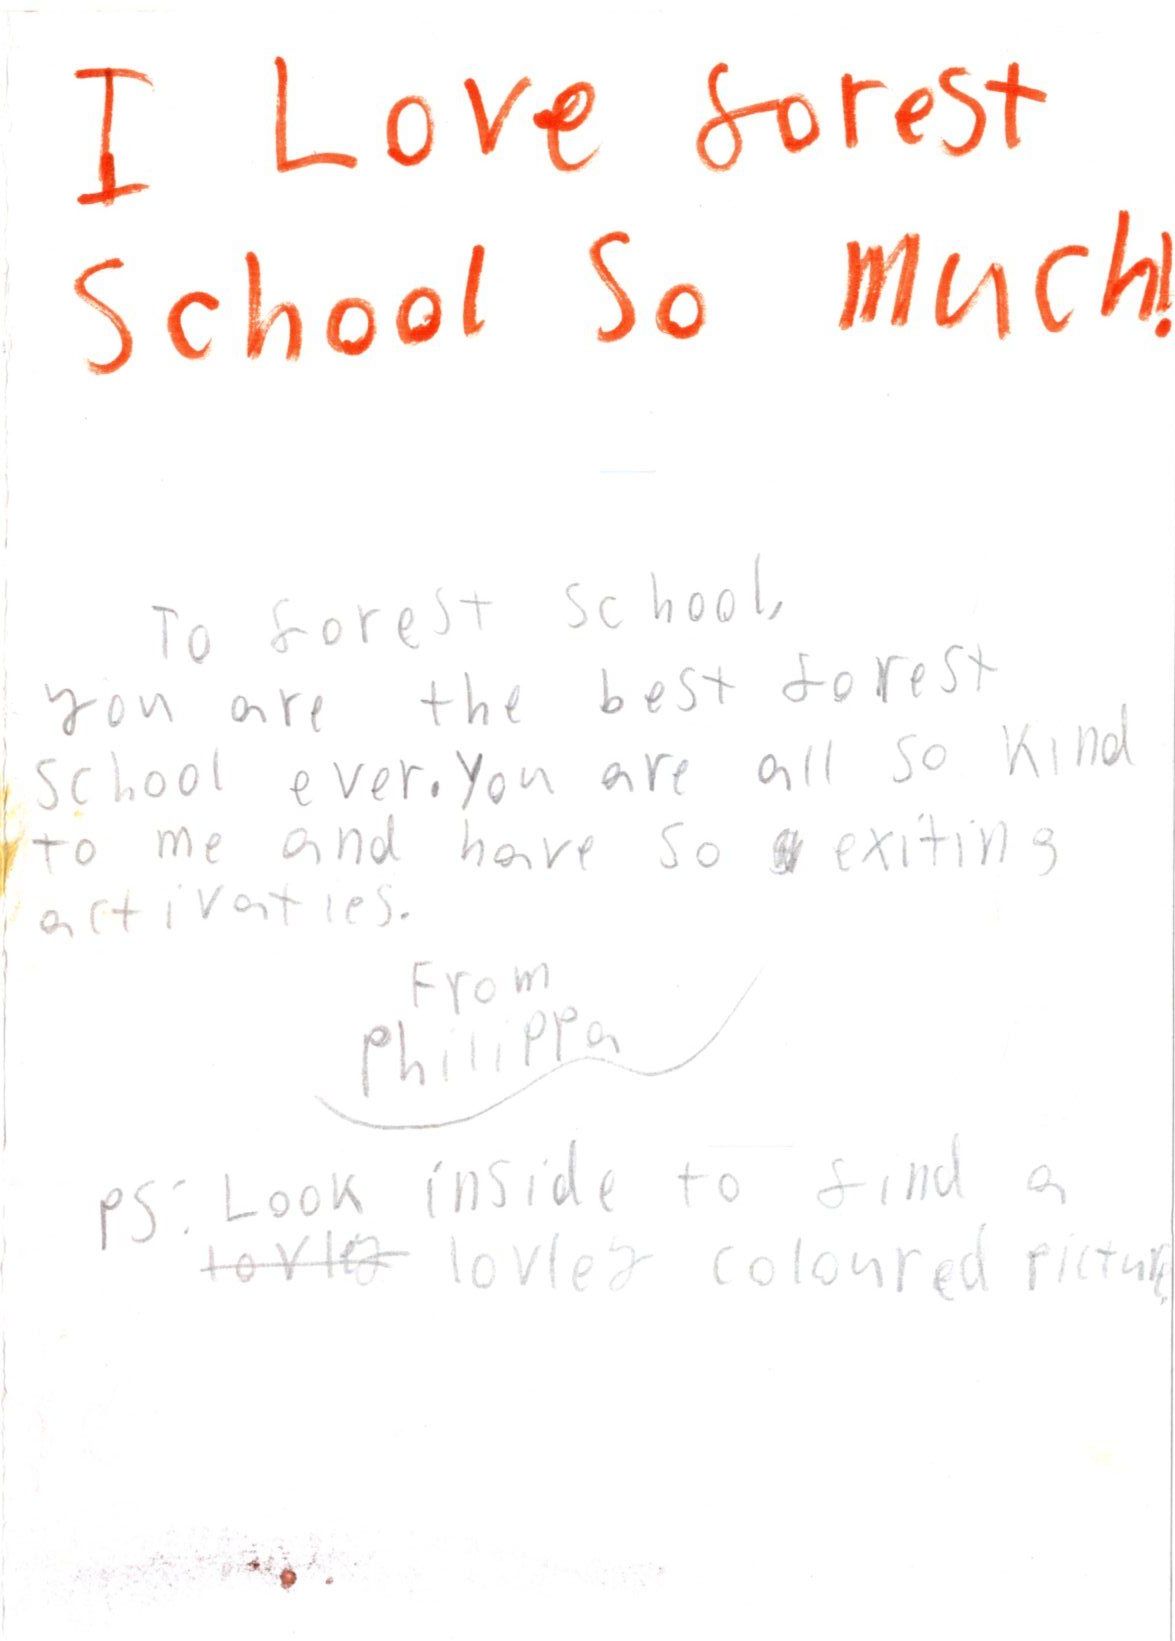 I Love forest
School So much!
To forest school,
you are the best forest
school ever. You are all so kind
to me and have so exiting
activaties.
From
Philippa
PS: Look inside to find a
lovley lovley coloured picture